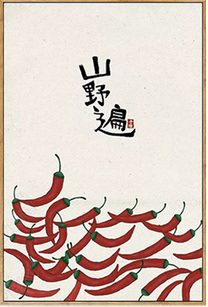 山野遍